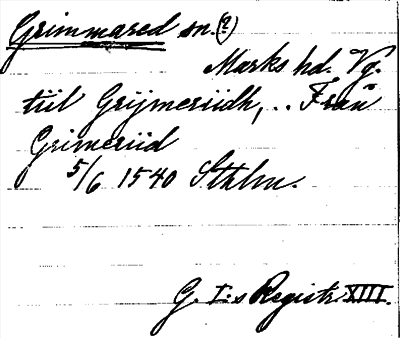 Grimmared sn. (?)
Marks hd. Vg.
till Grijmeriidh, .. Frän
Grimeriid
5/6 1540 Sthlm.
G. I:s Registr. XIII.